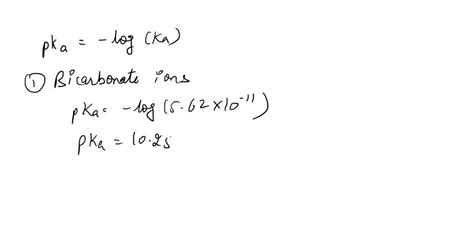 pKa = -log (Ka)
① Bicarbonate ions
pKa = -log (5.62 × 10⁻¹¹)
pKa = 10.25